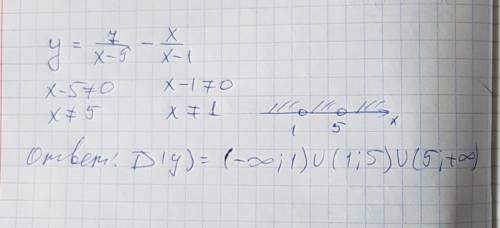 y = 7/(x-5) - x/(x-1)
x-5≠0 x-1≠0
x≠5 x≠1
1 5 x
Ответ: D(y) = (-∞; 1) ∪ (1; 5) ∪ (5; +∞)